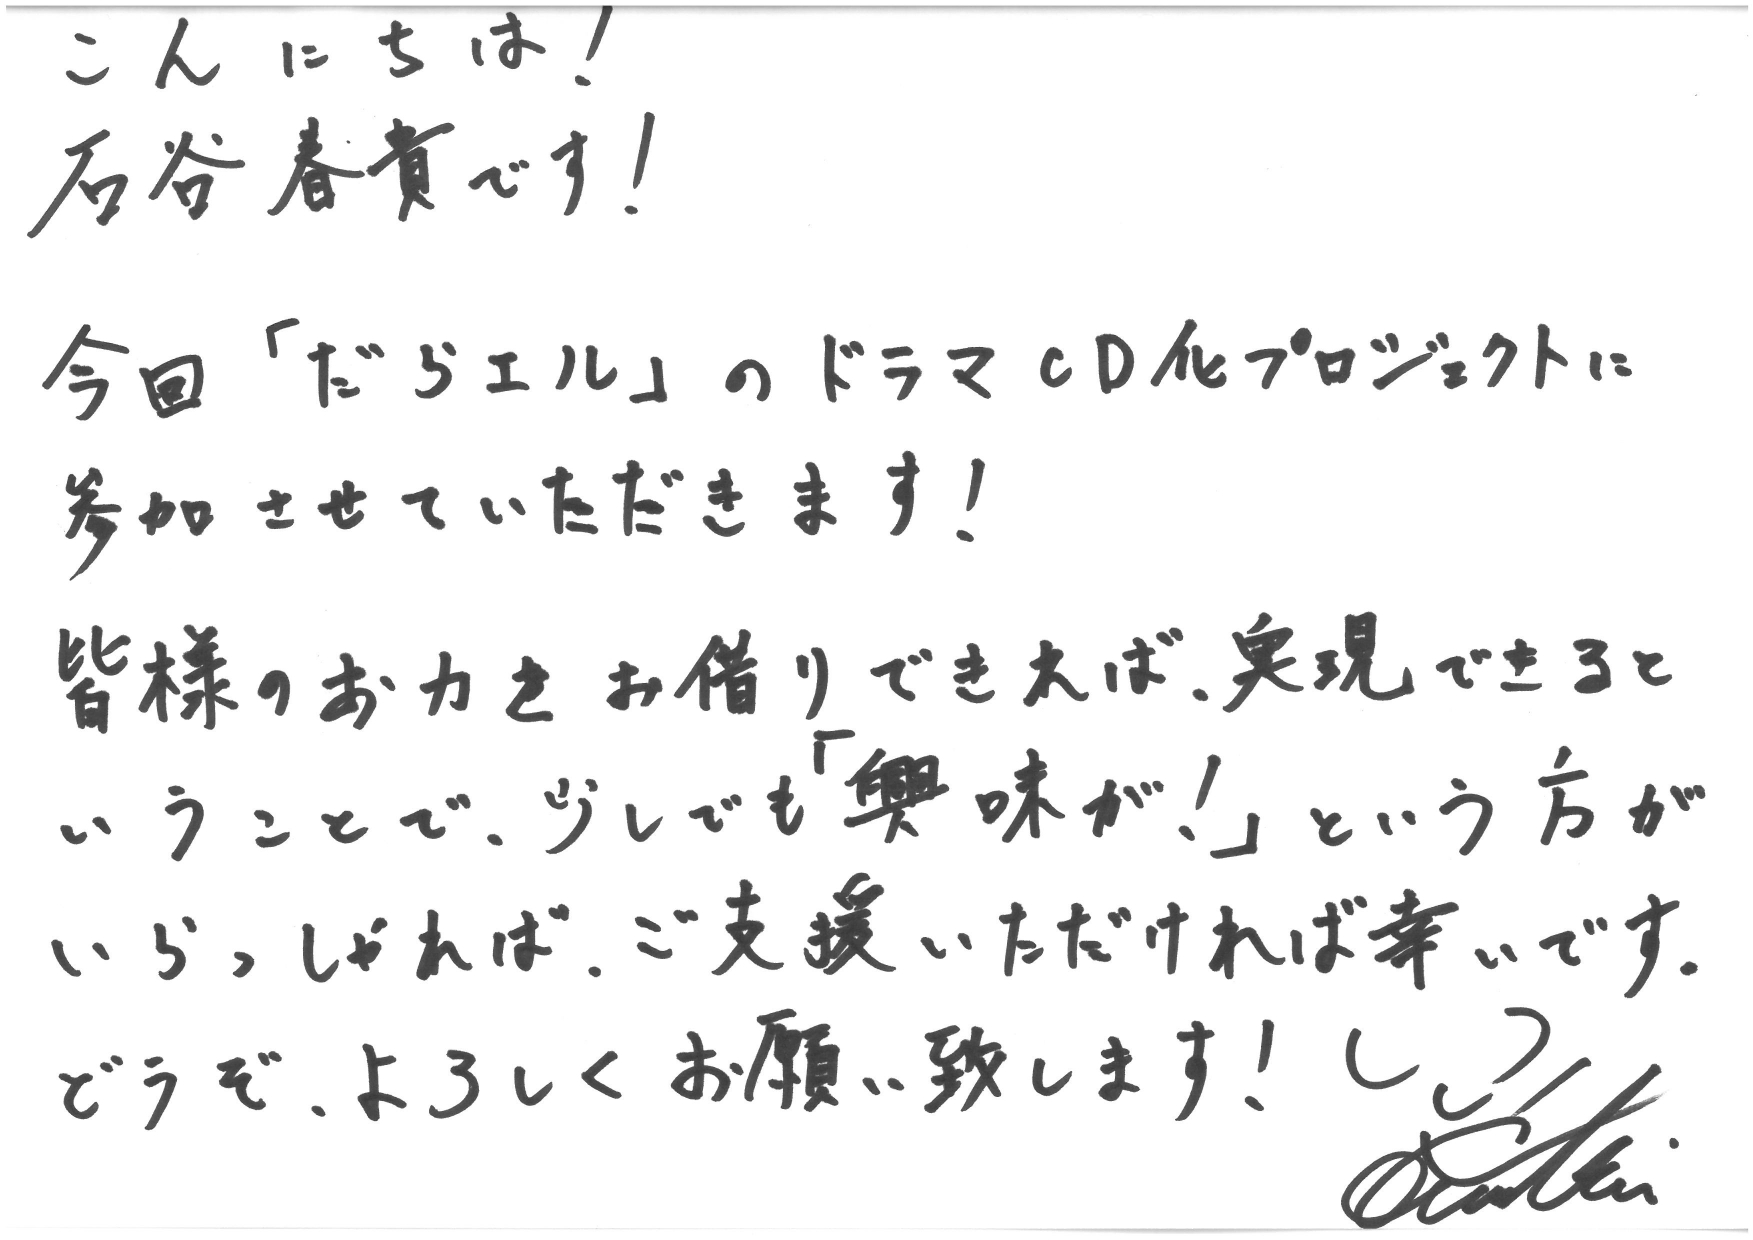 こんにちは!
石谷春貴です!
今回「だらエル」のドラマCD化プロジェクトに
参加させていただきます!
皆様のお力をお借りできれば、実現できると
いうことで、少しでも「興味が!」という方が
いらっしゃれば、ご支援いただければ幸いです。
どうぞ、よろしくお願い致します!